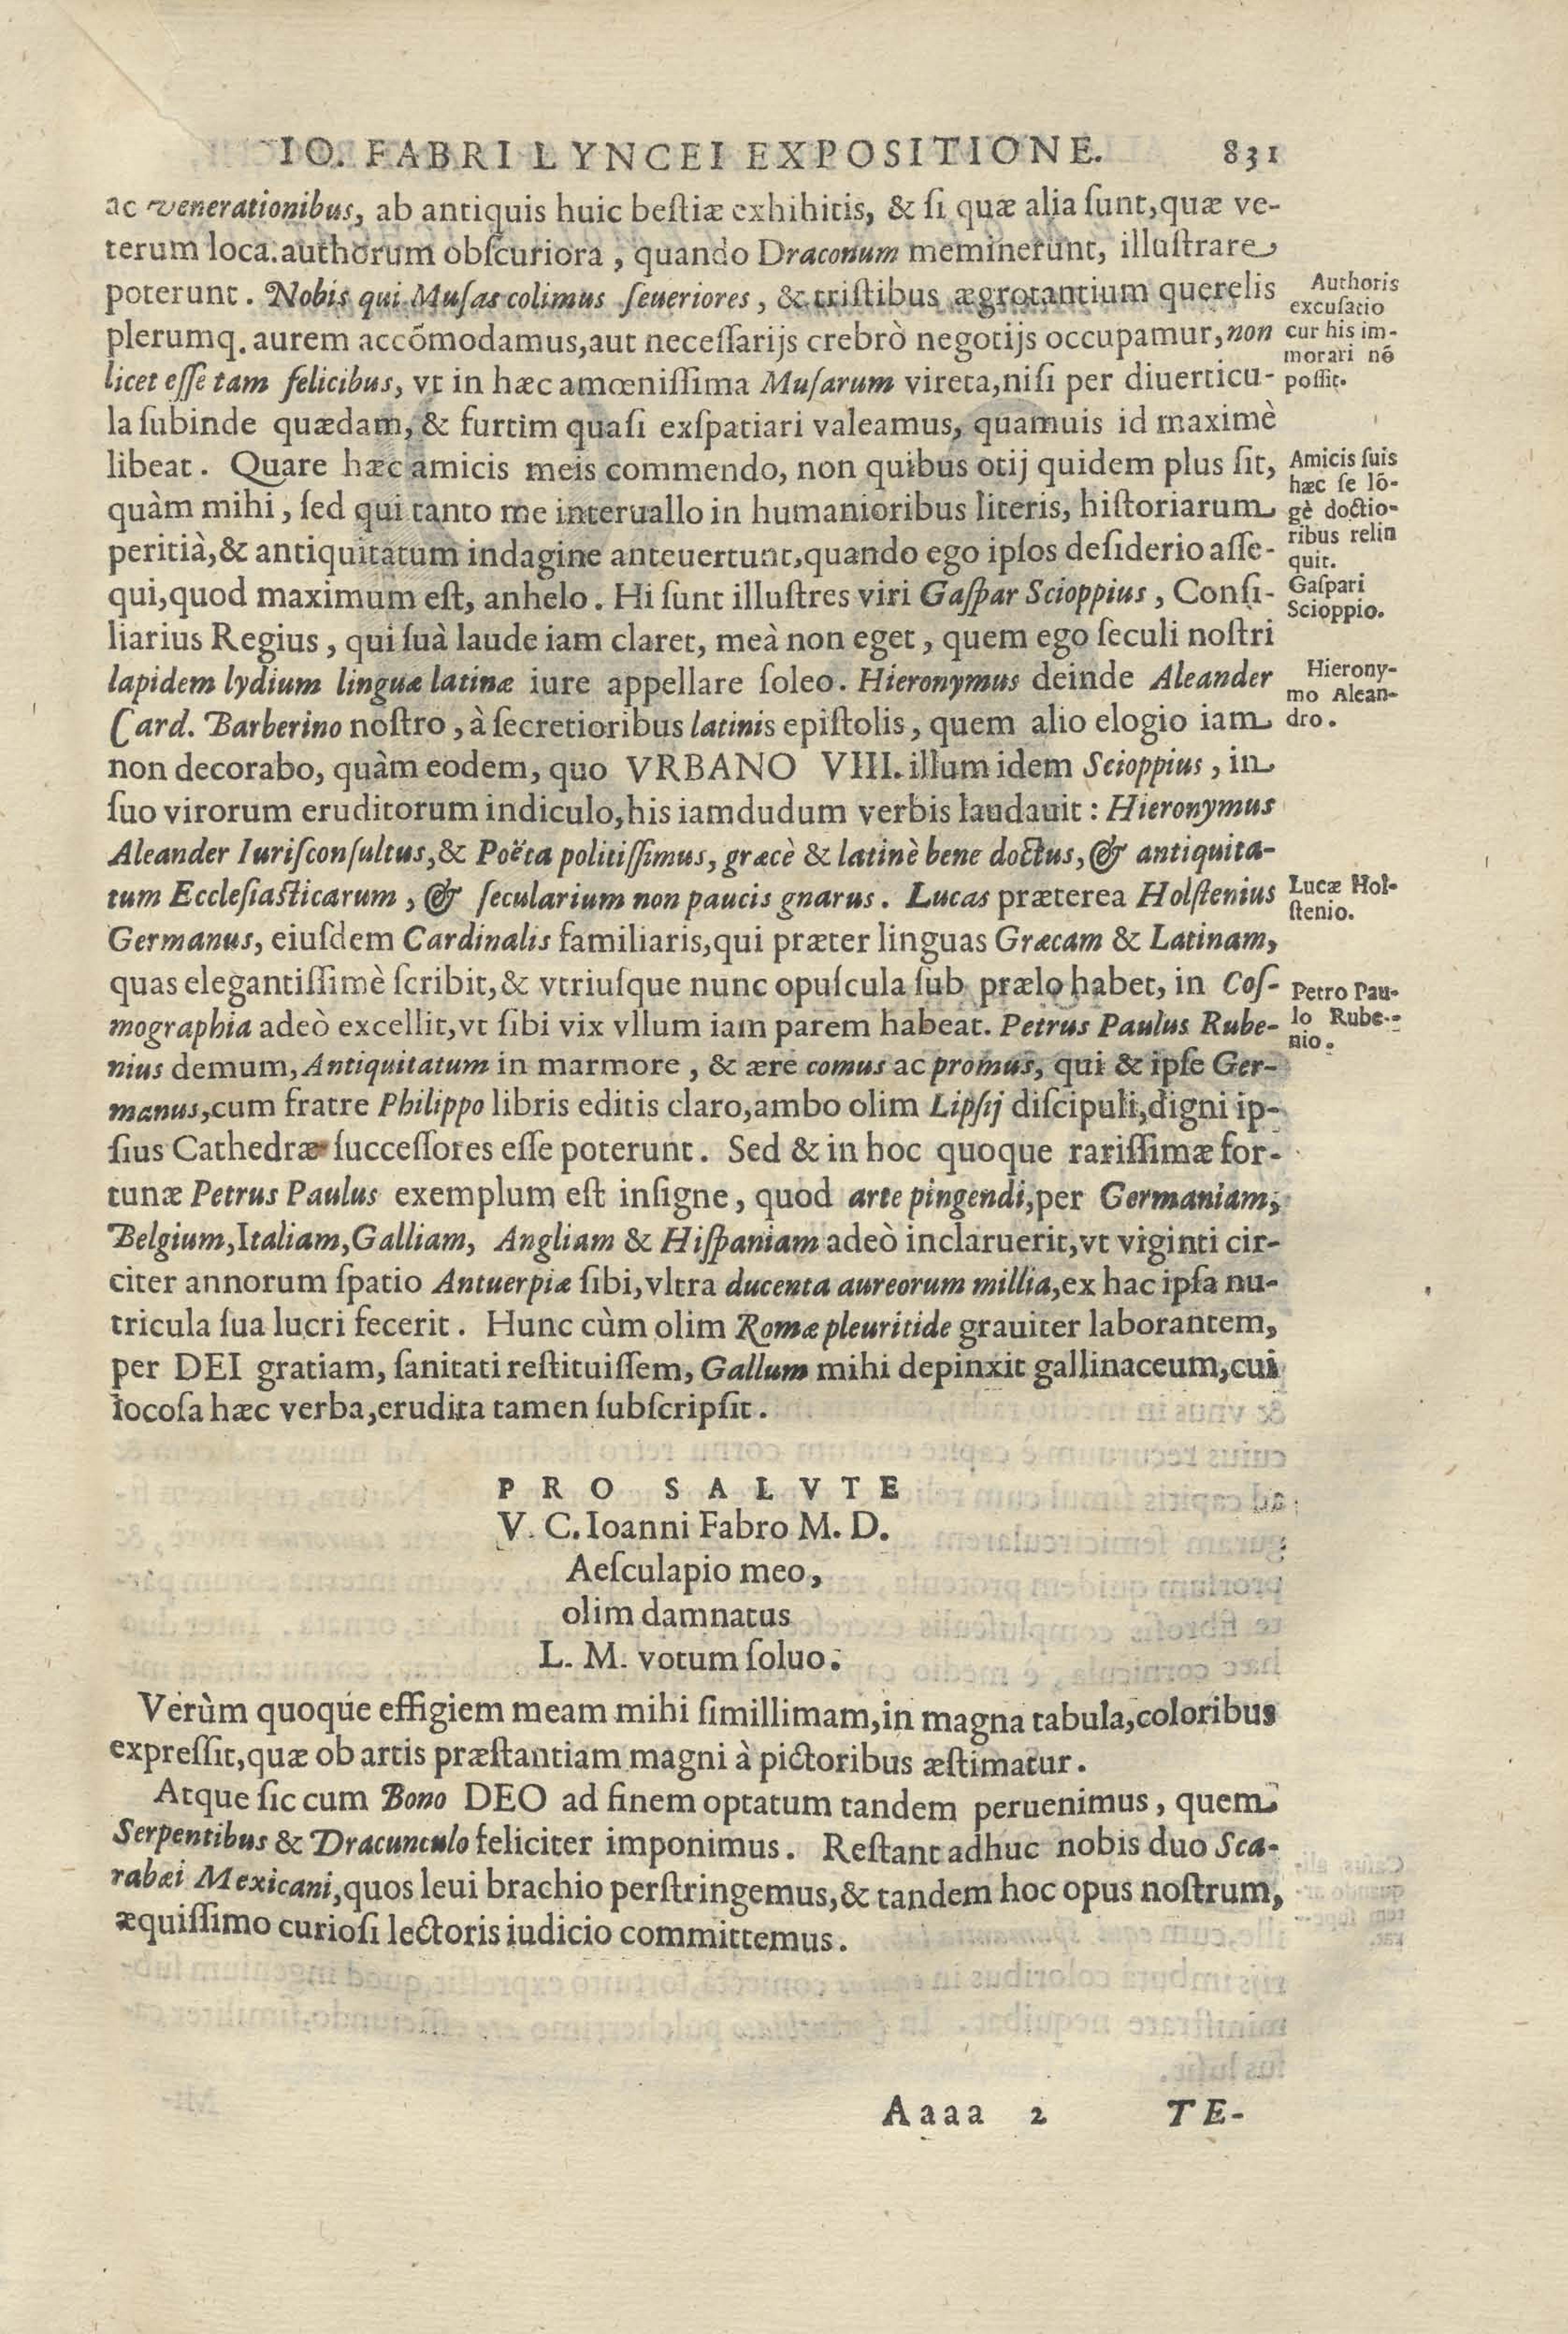 IO. FABRI LYNCEI EXPOSITIONE. 831
ac venerationibus, ab antiquis huic beſtiæ exhihitis, & ſi quæ alia ſunt,quæ ve-
terum loca.authorum obſcuriora, quando Draconum meminerunt, illuſtrare
poterunt. Nobis qui Muſas colimus ſeueriores, & triſtibus ægrotantium querelis
Authoris
excuſatio
cur his im-
morari nō
poſſit.
plerumq. aurem accōmodamus,aut neceſſarijs crebrò negotijs occupamur, non
licet eſſe tam felicibus, vt in hæc amœniſſima Muſarum vireta,niſi per diuerticu-
la ſubinde quædam, & furtim quaſi exſpatiari valeamus, quamuis id maximè
libeat. Quare hæc amicis meis commendo, non quibus otij quidem plus ſit,
Amicis ſuis
hæc ſe lō-
gè doctio-
ribus relin
quit.
quàm mihi, ſed qui tanto me interuallo in humanioribus literis, hiſtoriarum
peritià,& antiquitatum indagine anteuertunt,quando ego ipſos deſiderio aſſe-
qui,quod maximum eſt, anhelo. Hi ſunt illuſtres viri Gaſpar Scioppius, Conſi-
Gaſpari
Scioppio.
liarius Regius, qui ſuà laude iam claret, meà non eget, quem ego ſeculi noſtri
lapidem lydium linguæ latinæ iure appellare ſoleo. Hieronymus deinde Aleander
Hierony-
mo Alean-
dro.
Card. Barberino noſtro, à ſecretioribus latinis epiſtolis, quem alio elogio iam
non decorabo, quàm eodem, quo VRBANO VIII. illum idem Scioppius, in
ſuo virorum eruditorum indiculo,his iamdudum verbis laudauit: Hieronymus
Aleander Iuriſconſultus,& Poëta politiſſimus, græcè & latinè bene doctus, & antiquita-
tum Eccleſiaſticarum, & ſecularium non paucis gnarus. Lucas præterea Holſtenius
Lucæ Hol-
ſtenio.
Germanus, eiuſdem Cardinalis familiaris,qui præter linguas Græcam & Latinam,
quas elegantiſſimè ſcribit,& vtriuſque nunc opuſcula ſub prælo habet, in Coſ-
Petro Pau-
lo Rube-
nio.
mographia adeò excellit,vt ſibi vix vllum iam parem habeat. Petrus Paulus Rube-
nius demum, Antiquitatum in marmore, & ære comus ac promus, qui & ipſe Ger-
manus,cum fratre Philippo libris editis claro,ambo olim Lipſij diſcipuli,digni ip-
ſius Cathedræ ſucceſſores eſſe poterunt. Sed & in hoc quoque rariſſimæ for-
tunæ Petrus Paulus exemplum eſt inſigne, quod arte pingendi,per Germaniam,
Belgium,Italiam,Galliam, Angliam & Hiſpaniam adeò inclaruerit,vt viginti cir-
citer annorum ſpatio Antuerpiæ ſibi,vltra ducenta aureorum millia,ex hac ipſa nu-
tricula ſua lucri fecerit. Hunc cùm olim Romæ pleuritide grauiter laborantem,
per DEI gratiam, ſanitati reſtituiſſem, Gallum mihi depinxit gallinaceum,cui
iocoſa hæc verba,erudita tamen ſubſcripſit.
PRO SALVTE
V. C. Ioanni Fabro M. D.
Aeſculapio meo,
olim damnatus
L. M. votum ſoluo.
Verùm quoque effigiem meam mihi ſimillimam,in magna tabula,coloribus
expreſſit,quæ ob artis præſtantiam magni à pictoribus æſtimatur.
Atque ſic cum Bono DEO ad finem optatum tandem peruenimus, quem
Serpentibus & Dracunculo feliciter imponimus. Reſtant adhuc nobis duo Sca-
rabæi Mexicani,quos leui brachio perſtringemus,& tandem hoc opus noſtrum,
æquiſſimo curioſi lectoris iudicio committemus.
Aaaa 2 TE-